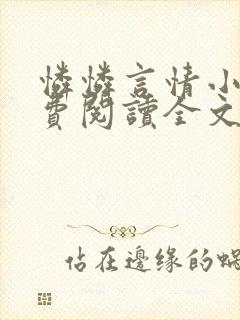 憐憐言情小
費閱讀全文
佔在邊緣的蝸